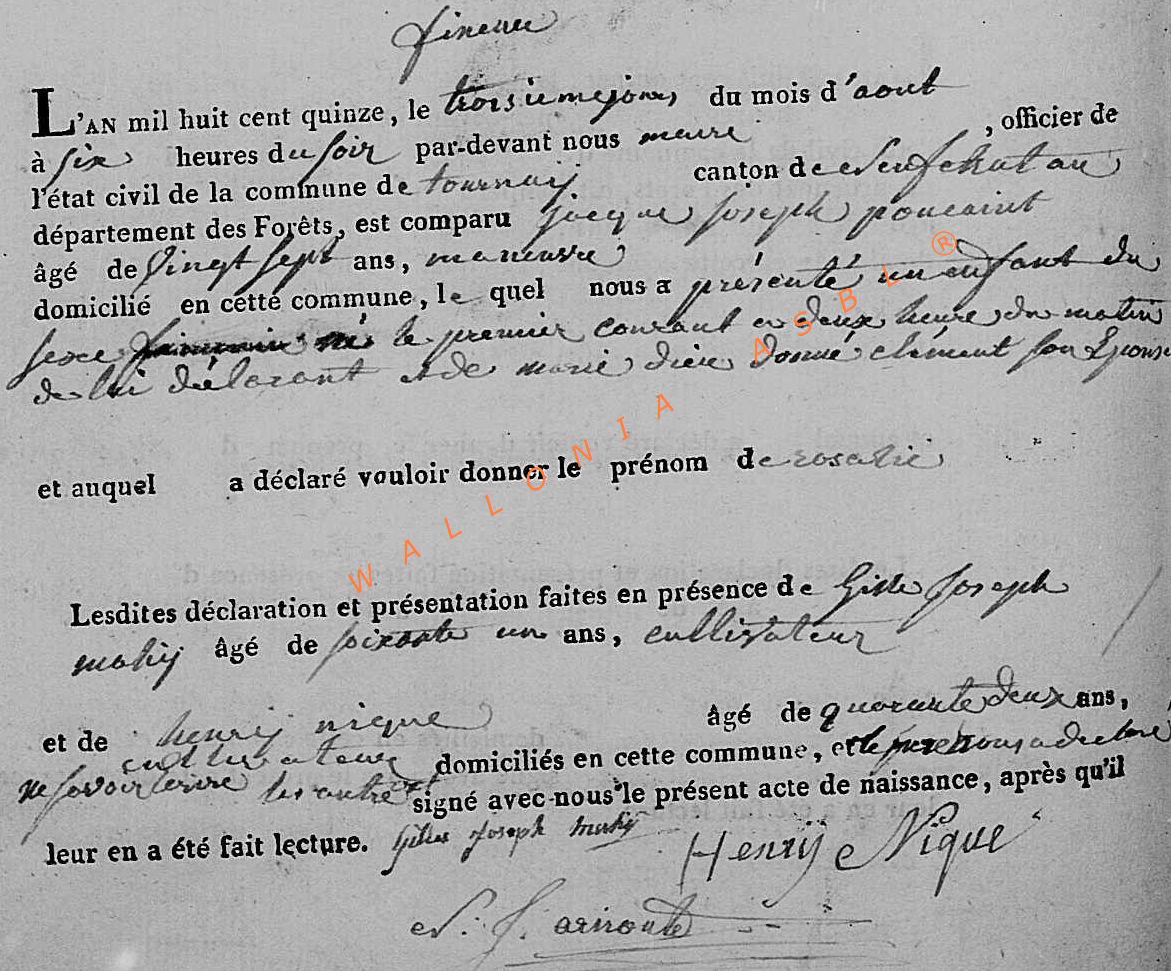 L'AN mil huit cent quinze, le troisieme jour du mois d'aout
à six heures du soir par-devant nous maire , officier de
l'état civil de la commune de tournay canton de Neufchatau
département des Forêts, est comparu jacque joseph poncaint
âgé de vingt sept ans, maneuvre
domicilié en cette commune, le quel nous a présenté un enfant du
sexe né le premier courant a deux heure du matin
de lui déclarant et de marie dieu donné clément son Epouse
et auquel a déclaré vouloir donner le prénom de rosalie
Lesdites déclaration et présentation faites en présence de Gille joseph
mahy âgé de soixante un ans, cultivateur
et de henry nique âgé de quarante deux ans,
cultivateur domiciliés en cette commune, et le pere nous a declaré
ne savoir ecrire les autres ont signé avec nous le présent acte de naissance, après qu'il
leur en a été fait lecture. Gilles joseph mahy
Henrÿ Nique
WALLONIA ASBL ®